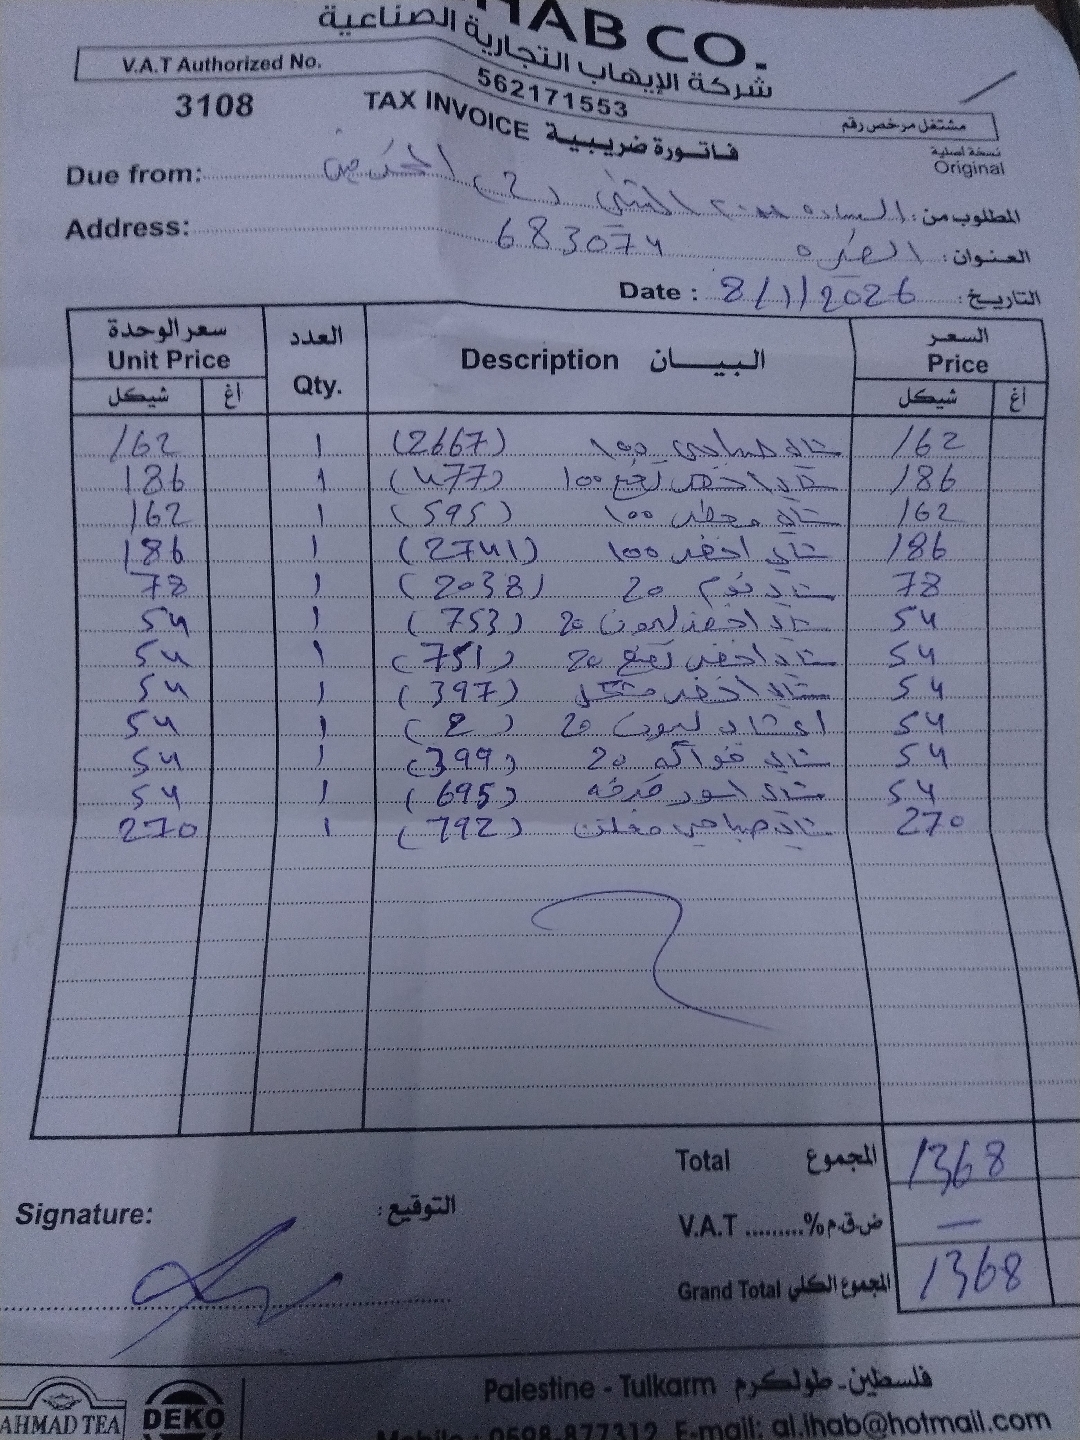 HAB CO.
شركة الإيهاب التجارية الصناعية
V.A.T Authorized No. 562171553 مشتغل مرخص رقم
3108 TAX INVOICE فاتورة ضريبية نسخة اصلية
Original
Due from: المطلوب من: الساده (2)
Address: العنوان: 683074
Date : 8/1/2026 التاريخ:
سعر الوحدة العدد البيان السعر
Unit Price Qty. Description Price
شيكل أغ شيكل أغ
162 1 (2667) شاي صباحي 100 162
186 1 (477) شاي اخضر نعنع 100 186
162 1 (595) شاي معطر 100 162
186 1 (2741) شاي اخضر 100 186
78 1 (2038) شاي 20 78
54 1 (753) شاي اخضر ليمون 20 54
54 1 (751) شاي اخضر نعنع 20 54
54 1 (397) شاي اخضر مشكل 54
54 1 (2) شاي ليمون 20 54
54 1 (399) شاي فواكه 20 54
54 1 (695) شاي اسود قرفه 54
270 1 (792) شاي صباحي مغلف 270
Total المجموع 1368
Signature: التوقيع:
V.A.T .........% ض.ق.م —
Grand Total المجموع الكلي 1368
Palestine - Tulkarm فلسطين - طولكرم
AHMAD TEA DEKO
Mobile : 0598-877312 E-mail: al.ihab@hotmail.com